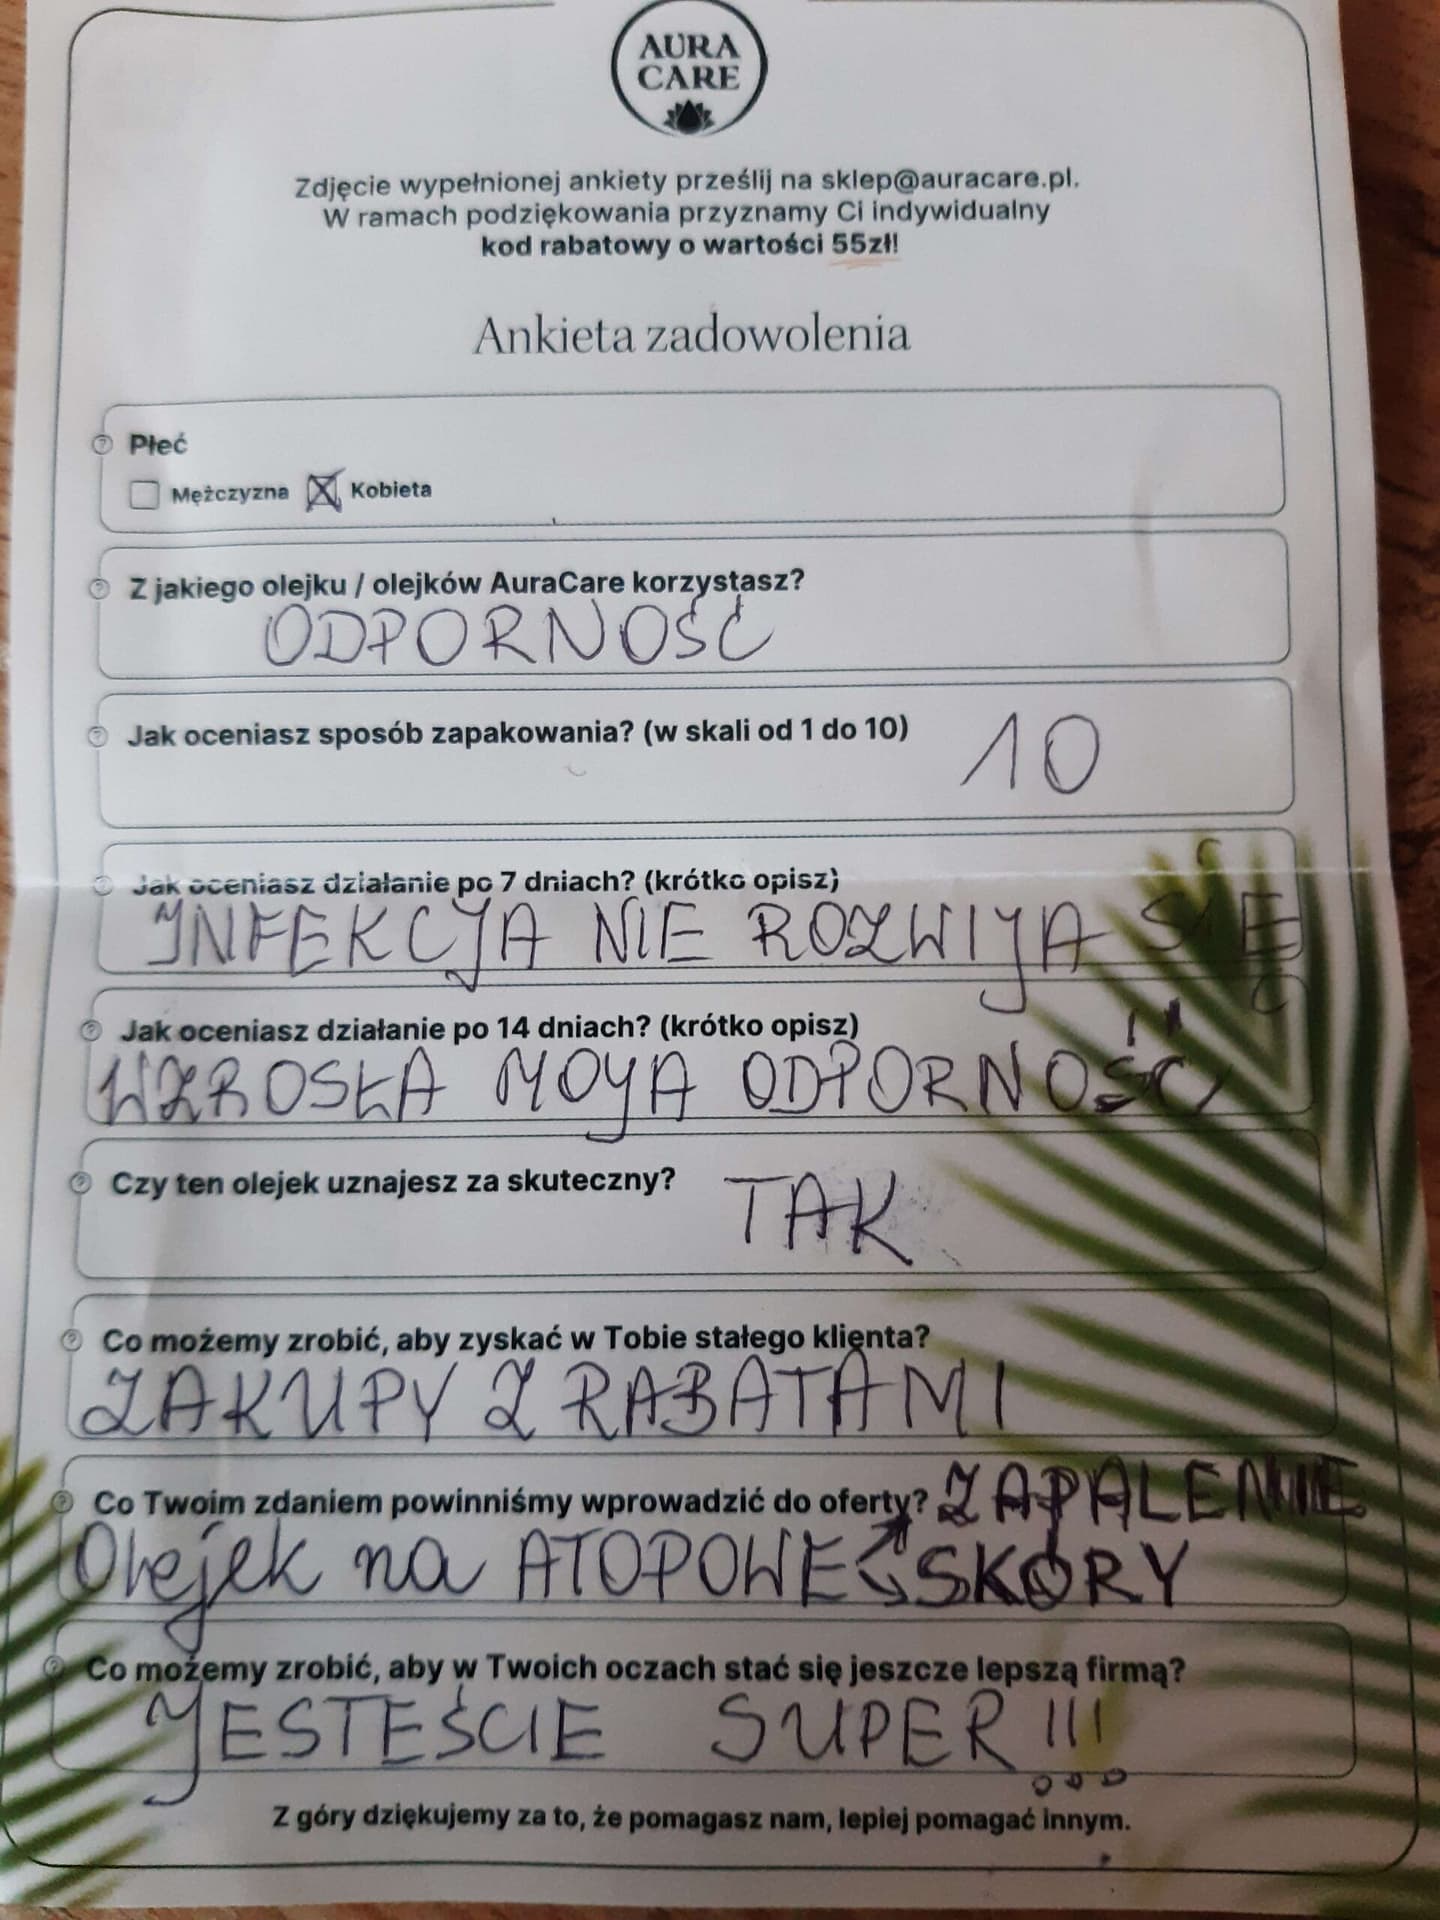 AURA
CARE
Zdjęcie wypełnionej ankiety prześlij na sklep@auracare.pl.
W ramach podziękowania przyznamy Ci indywidualny
kod rabatowy o wartości 55zł!
Ankieta zadowolenia
Płeć
Mężczyzna Kobieta
Z jakiego olejku / olejków AuraCare korzystasz?
ODPORNOŚĆ
Jak oceniasz sposób zapakowania? (w skali od 1 do 10) 10
Jak oceniasz działanie po 7 dniach? (krótko opisz)
INFEKCJA NIE ROZWIJA SIĘ
Jak oceniasz działanie po 14 dniach? (krótko opisz)
WZROSŁA MOJA ODPORNOŚĆ
Czy ten olejek uznajesz za skuteczny? TAK
Co możemy zrobić, aby zyskać w Tobie stałego klienta?
ZAKUPY Z RABATAMI
Co Twoim zdaniem powinniśmy wprowadzić do oferty? ZAPALENIE
Olejek na ATOPOWE SKÓRY
Co możemy zrobić, aby w Twoich oczach stać się jeszcze lepszą firmą?
JESTEŚCIE SUPER!!!
Z góry dziękujemy za to, że pomagasz nam, lepiej pomagać innym.